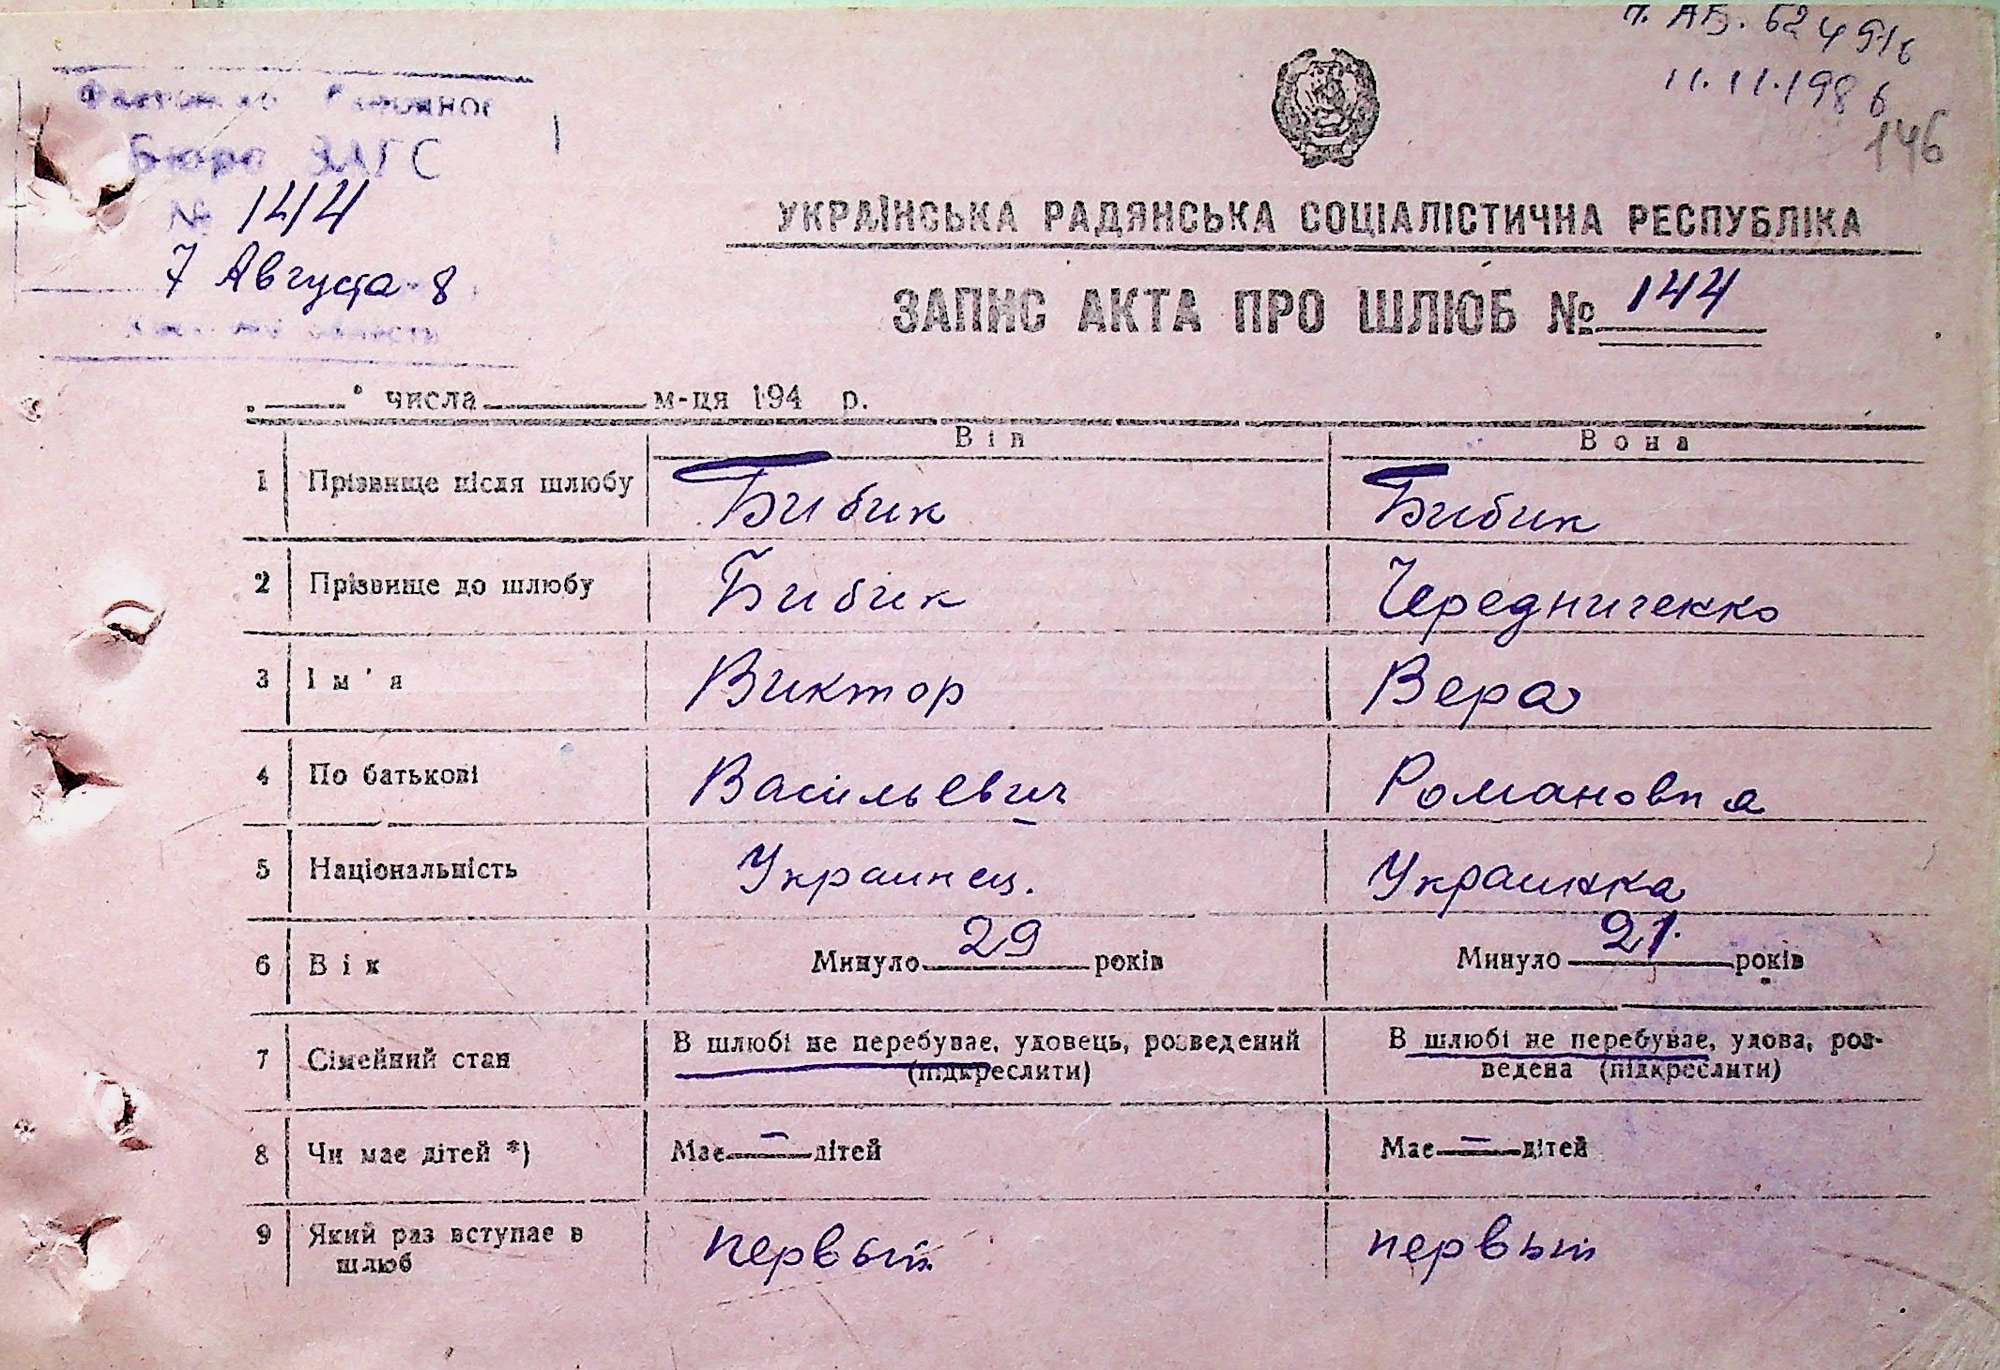 АБ. 624916
11.11.1986
146
Бюро ЗАГС
№ 144
7 Августа 8
УКРАЇНСЬКА РАДЯНСЬКА СОЦІАЛІСТИЧНА РЕСПУБЛІКА
ЗАПИС АКТА ПРО ШЛЮБ № 144
" числа м-ця 194 р.
Він Вона
1 Прізвище після шлюбу Бибик Бибик
2 Прізвище до шлюбу Бибик Чередниченко
3 Ім'я Виктор Вера
4 По батькові Васильевич Романовна
5 Національність Украинец. Украинка
6 Вік Минуло 29 років Минуло 21. років
7 Сімейний стан В шлюбі не перебуває, удовець, розведений В шлюбі не перебуває, удова, роз-
(підкреслити) ведена (підкреслити)
8 Чи має дітей *) Має – дітей Має – дітей
9 Який раз вступає в первый первый
шлюб